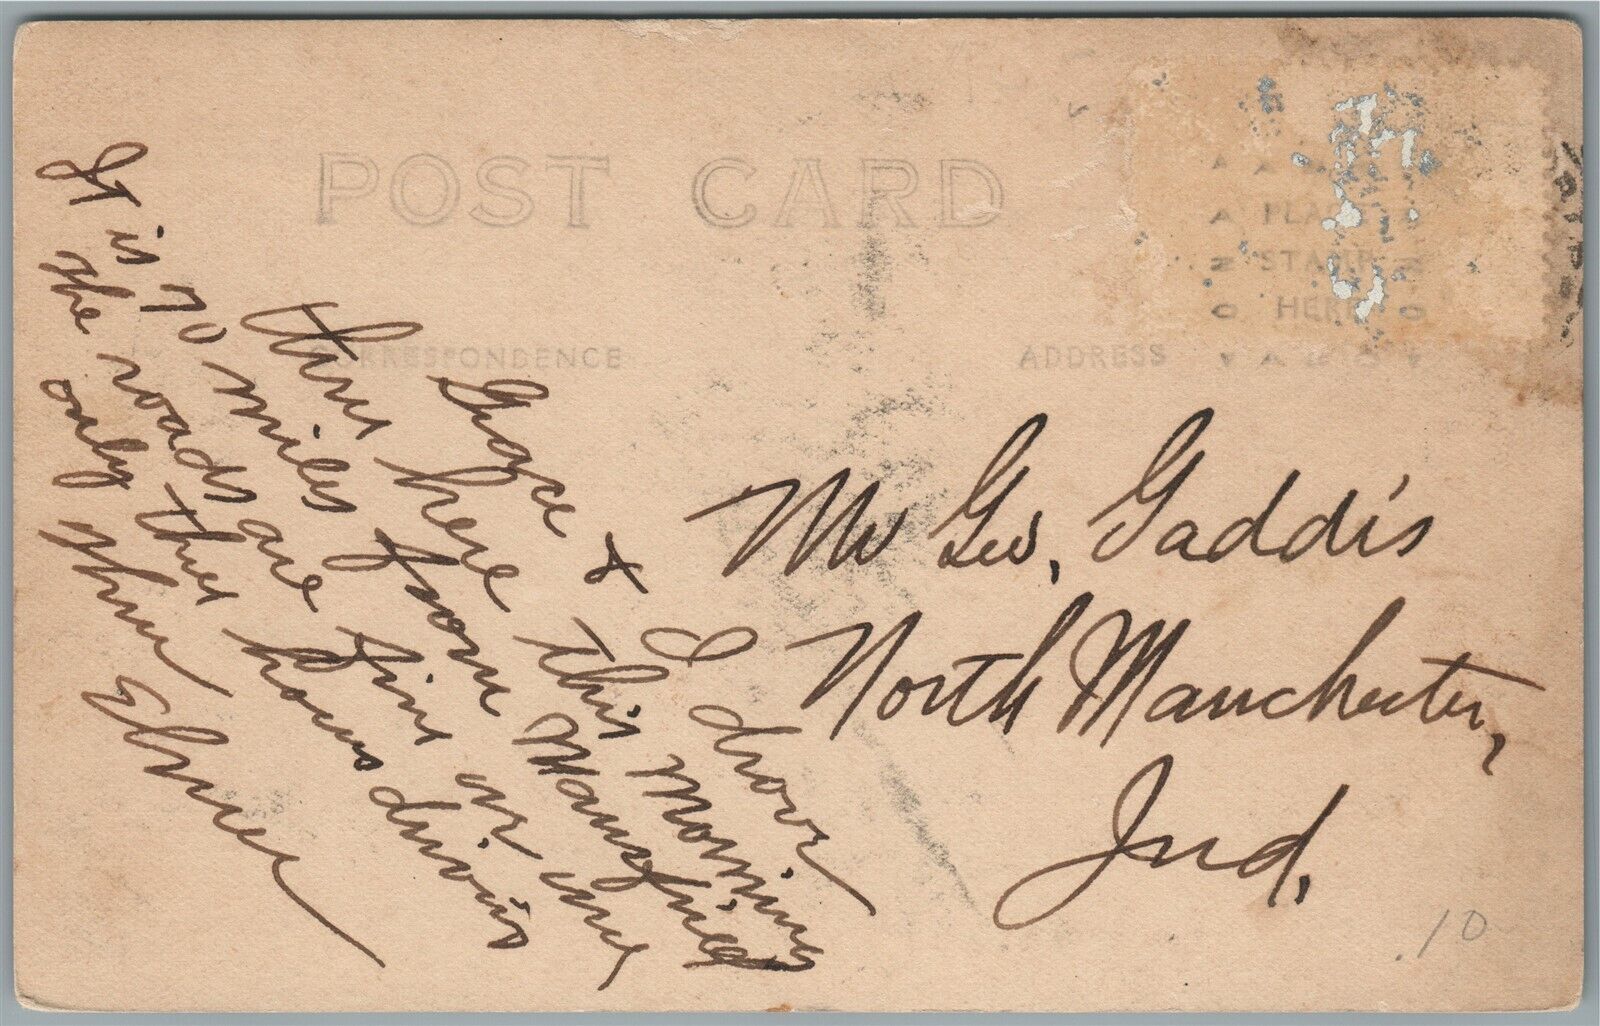 POST CARD
PLACE
STAMP
HERE
CORRESPONDENCE
ADDRESS
Grace & I drove
thru here this morning
It is 70 miles from Mansfield
the roads are fine or
only three hours driving
thru
Elmer
Mr Geo. Gaddis
North Manchester,
Ind.
.10